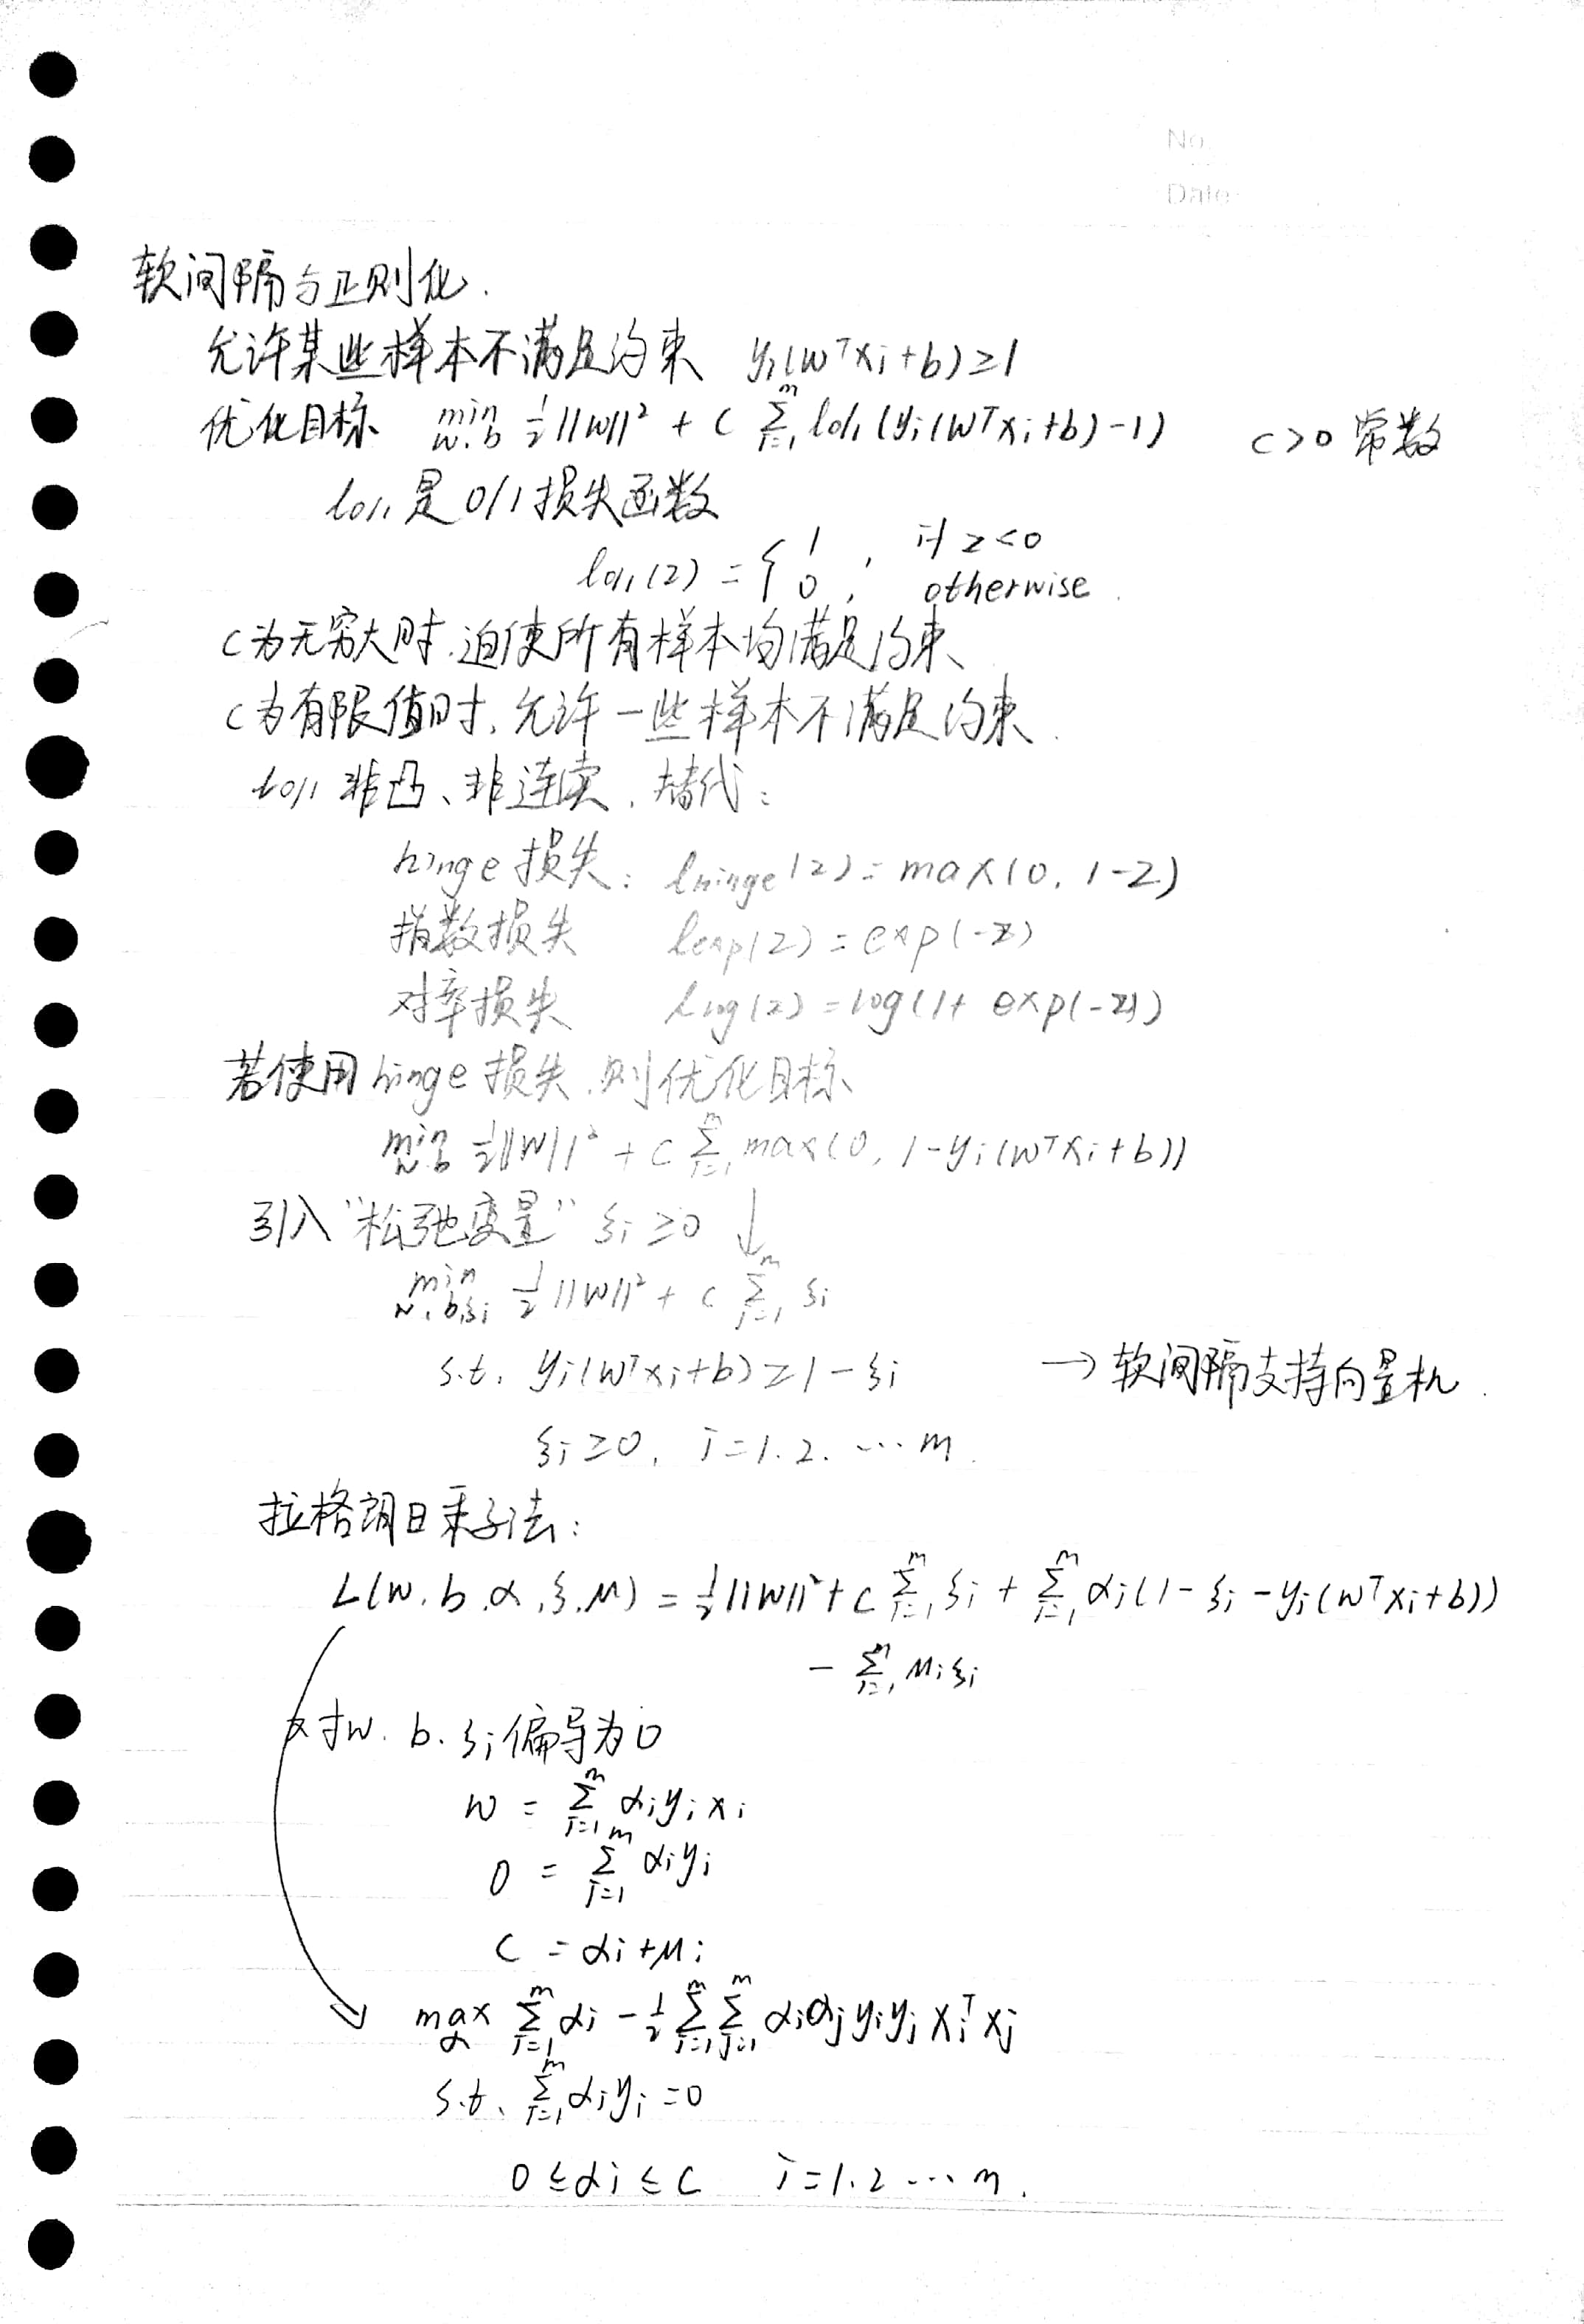 No.
Date
软间隔与正则化.
允许某些样本不满足约束 yᵢ(wᵀxᵢ+b)≥1
优化目标 min_{w.b} ½||w||² + C ∑_{i=1}^{m} l₀/₁(yᵢ(wᵀxᵢ+b)-1) C>0 常数
l₀/₁ 是 0/1 损失函数
l₀/₁(z) = { 1, if z<0
0, otherwise.
C为无穷大时.迫使所有样本均满足约束、
C为有限值时,允许一些样本不满足约束.
l₀/₁ 非凸、非连续,替代:
hinge 损失: l_{hinge}(z) = max(0, 1-z)
指数损失 l_{exp}(z) = exp(-z)
对率损失 l_{log}(z) = log(1+ exp(-z))
若使用hinge 损失.则优化目标
min_{w.b} ½||w||² + C ∑_{i=1}^{m} max(0, 1-yᵢ(wᵀxᵢ+b))
引入“松弛变量” ξᵢ ≥0 ↓
min_{w.b,ξᵢ} ½||w||² + C ∑_{i=1}^{m} ξᵢ
s.t. yᵢ(wᵀxᵢ+b) ≥ 1-ξᵢ → 软间隔支持向量机.
ξᵢ ≥0, i=1.2. … m.
拉格朗日乘子法:
L(w.b.α.ξ.μ) = ½||w||² + C ∑_{i=1}^{m} ξᵢ + ∑_{i=1}^{m} αᵢ(1-ξᵢ-yᵢ(wᵀxᵢ+b))
- ∑_{i=1}^{m} μᵢξᵢ
对w. b. ξᵢ偏导为0
w = ∑_{i=1}^{m} αᵢyᵢxᵢ
0 = ∑_{i=1}^{m} αᵢyᵢ
C = αᵢ+μᵢ
max_{α} ∑_{i=1}^{m} αᵢ - ½ ∑_{i=1}^{m} ∑_{j=1}^{m} αᵢαⱼyᵢyⱼxᵢᵀxⱼ
s.t. ∑_{i=1}^{m} αᵢyᵢ=0
0≤αᵢ≤C i=1.2 … m.